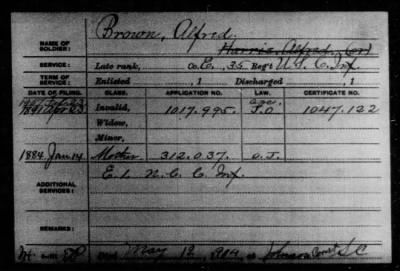 Brown, Alfred.
NAME OF SOLDIER: Harris, Alfred, (or)
SERVICE: Late rank, Co. E, 35 Regt U.S.C. Inf.
TERM OF SERVICE: Enlisted , 1 Discharged , 1
DATE OF FILING. CLASS. APPLICATION NO. LAW. CERTIFICATE NO.
1891 Invalid, 1017.995. 1047.122
Widow,
Minor,
1884 Jan 14 Mother 312.037. O.L.
ADDITIONAL SERVICES: E. 1. N.C.C. Inf.
REMARKS:
Died May 12, 1914, at Johnson S.C.